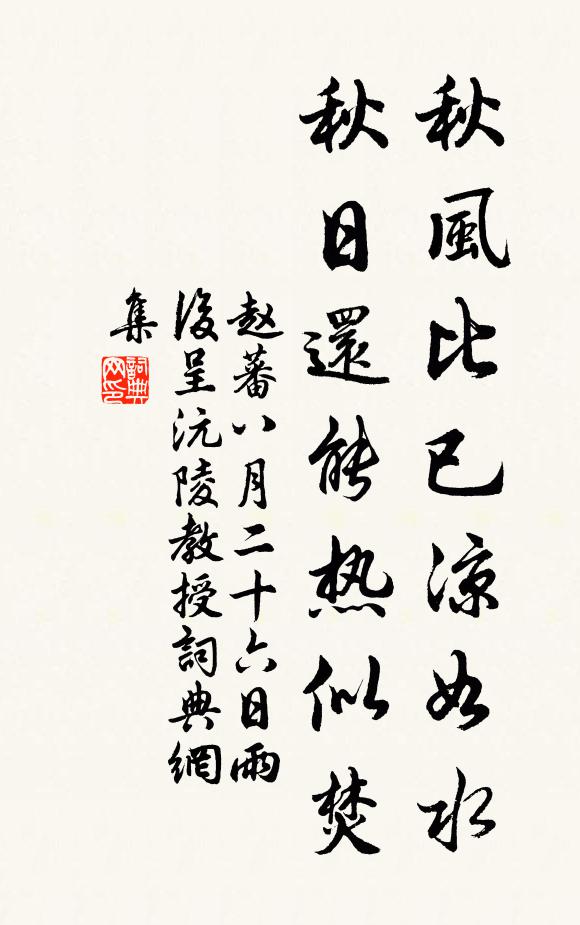 秋風比已涼如水
秋日還能热似焚
赵蕃八月二十六日雨
後呈沅陵教授詞典網
集
詞典
网印